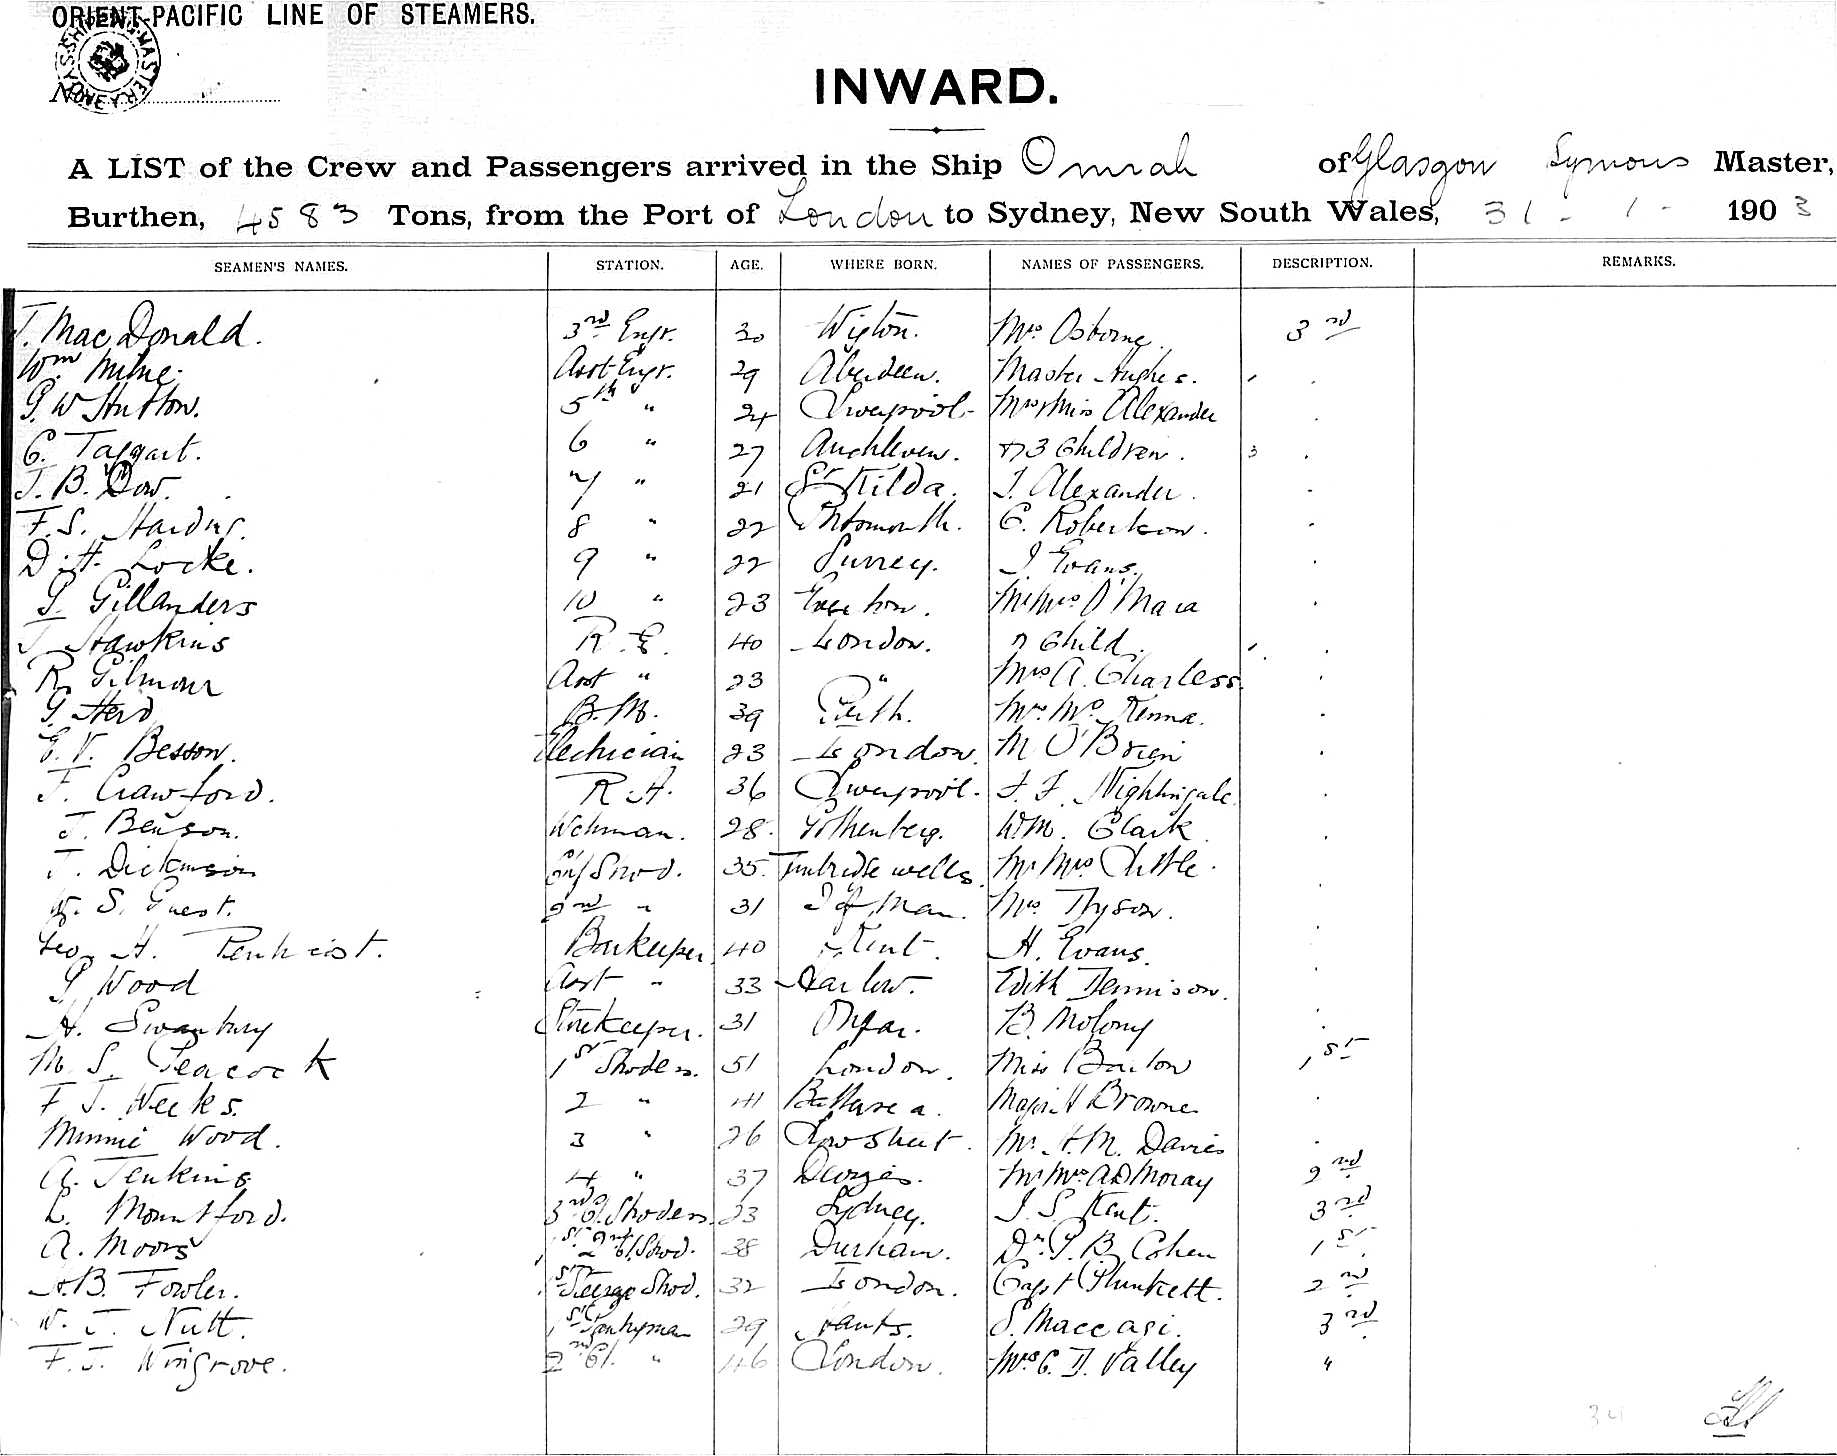 ORIENT-PACIFIC LINE OF STEAMERS.
INWARD.
A LIST of the Crew and Passengers arrived in the Ship Omrah of Glasgow Symons Master,
Burthen, 4583 Tons, from the Port of London to Sydney, New South Wales, 31 - 1 - 1903
SEAMEN'S NAMES. STATION. AGE. WHERE BORN. NAMES OF PASSENGERS. DESCRIPTION. REMARKS.
J. MacDonald. 3rd Engr. 30 Wigton. Mrs Osborne. 3rd
Wm Milne. Asst Engr. 29 Aberdeen. Master Hughes.
G. W Hutton. 5th " 24 Liverpool. Mrs Miss Alexander
C. Taggart. 6 " 27 Auchleven. & 3 Children. 3
J. B. Dow. 7 " 21 St Kilda. J. Alexander.
F. S. Harding. 8 " 22 Portsmouth. C. Robertson.
D. H. Locke. 9 " 22 Surrey. J. Evans.
G. Gillanders 10 " 23 Mr Mrs O'Mara
J. Hawkins R. E. 40 London. & Child.
R. Gilmour Asst " 23 " Mrs A. Charless.
G. Herd B. M. 39 Perth. Mrs McKenna.
E. V. Besson. Electrician 23 London. M O'Brien
J. Crawford. R. A. 36 Liverpool. J. F. Nightingale.
J. Benson. 28. Gothenberg. Wm. Clark
J. Dickinson Ch Stwd. 35. Tunbridge wells. Mr Mrs Little.
W. S. Guest. 2nd " 31 I of Man. Mrs Tyson.
Geo. H. Penhirst. Barkeeper 40 Kent. H. Evans.
G Wood Asst " 33 Harlow. Edith Dennison.
H. Swanbury Storekeeper. 31 Ongar. B. Molony
M. S. Peacock 1st Stwdess. 51 London. Miss Barton 1st
F. J. Weeks. 2 " 41 Battersea. Major H Browne
Minnie Wood. 3 " 26 Mr H. M. Davies
A. Jenkins. 4 " 37 Mr Mrs A D Moray 2nd
L. Mountford. 3rd Cl. Stwdess. 23 Sydney. J. S. Kent. 3rd
A. Moors 2nd Cl. Stwd. 38 Durham. Dr. G. B. Cohen 1st
H. B. Fowler. Stwd. 32 London. Capt Plunkett. 2nd
W. J. Nutt. 1st Pantryman 29 Hants. S. Maccagi. 3rd
F. J. Wingrove. 2nd Cl. " 46 London. Mrs C. D. Valley "
34